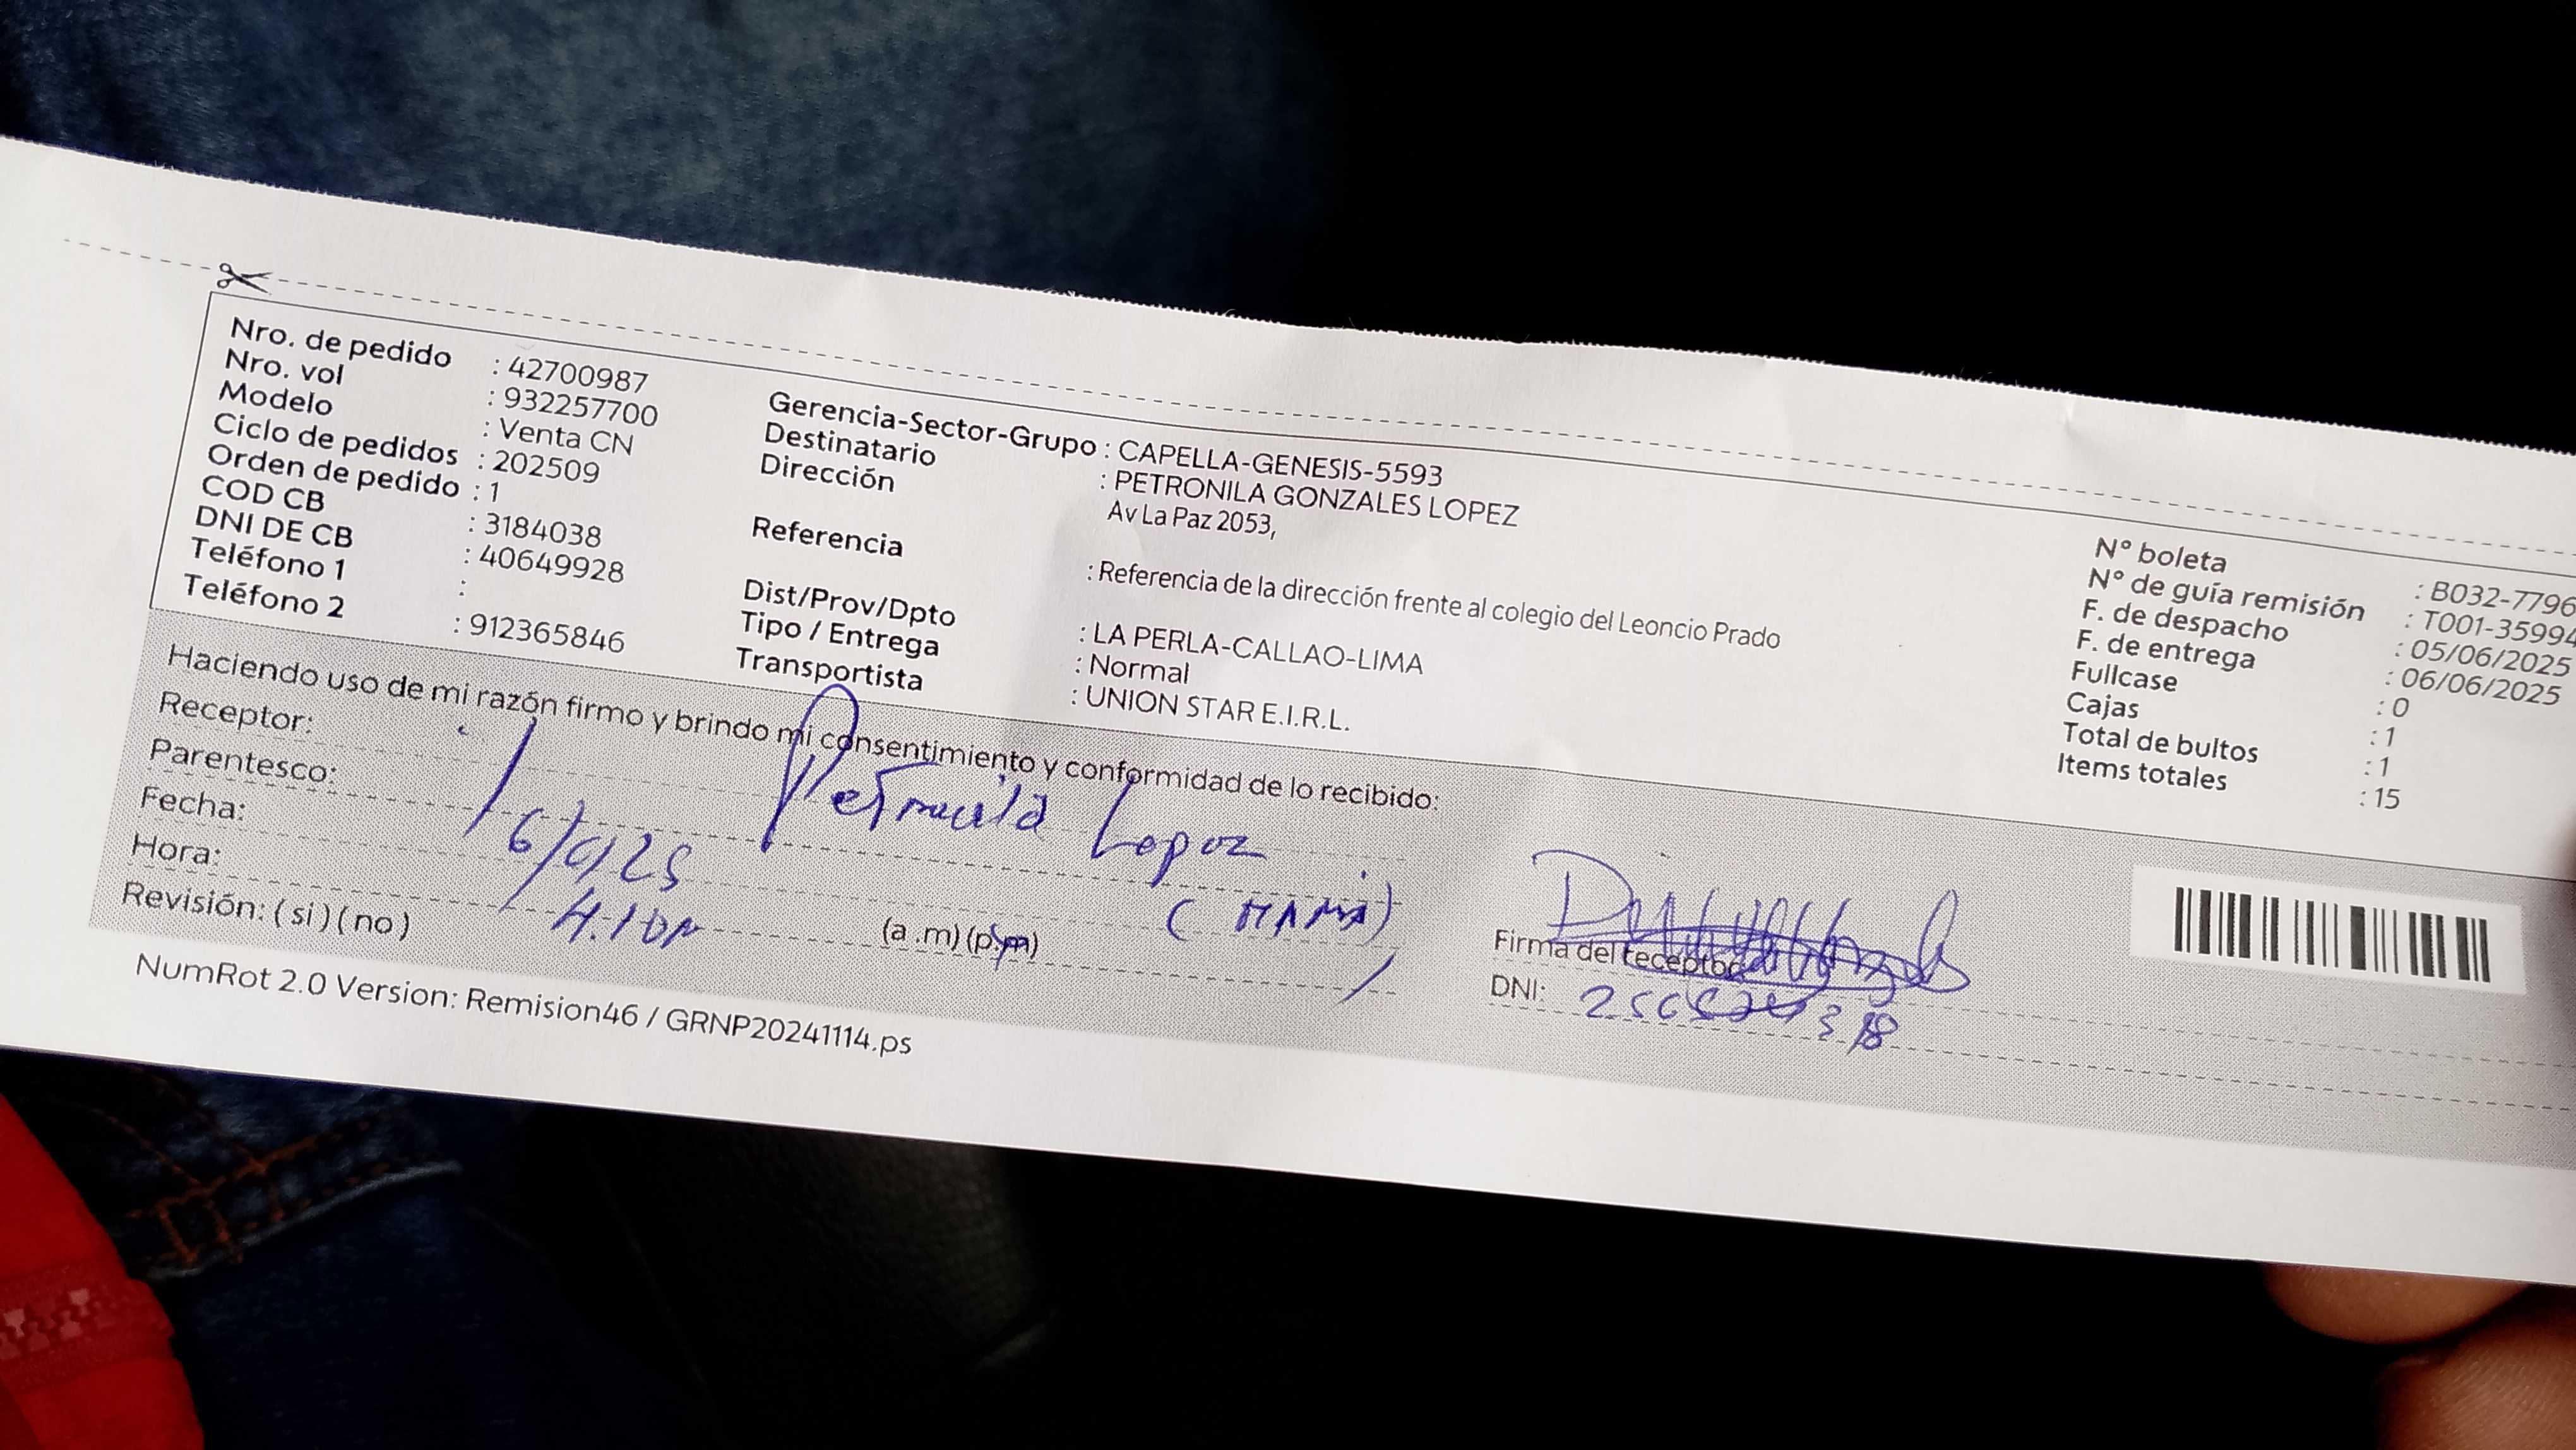 Nro. de pedido : 42700987
Nro. vol : 932257700
Modelo : Venta CN
Ciclo de pedidos : 202509
Orden de pedido : 1
COD CB : 3184038
DNI DE CB : 40649928
Teléfono 1 :
Teléfono 2 : 912365846
Gerencia-Sector-Grupo : CAPELLA-GENESIS-5593
Destinatario : PETRONILA GONZALES LOPEZ
Dirección Av La Paz 2053,
Referencia : Referencia de la dirección frente al colegio del Leoncio Prado
Dist/Prov/Dpto : LA PERLA-CALLAO-LIMA
Tipo / Entrega : Normal
Transportista : UNION STAR E.I.R.L.
N° boleta : B032-7796
N° de guía remisión : T001-35994
F. de despacho : 05/06/2025
F. de entrega : 06/06/2025
Fullcase : 0
Cajas : 1
Total de bultos : 1
Items totales : 15
Haciendo uso de mi razón firmo y brindo mi consentimiento y conformidad de lo recibido:
Receptor: Lopez
Parentesco: (MAMA)
Fecha:
Hora: (a .m) (p.m)
Revisión: ( si ) ( no )
Firma del receptor
DNI:
NumRot 2.0 Version: Remision46 / GRNP20241114.ps